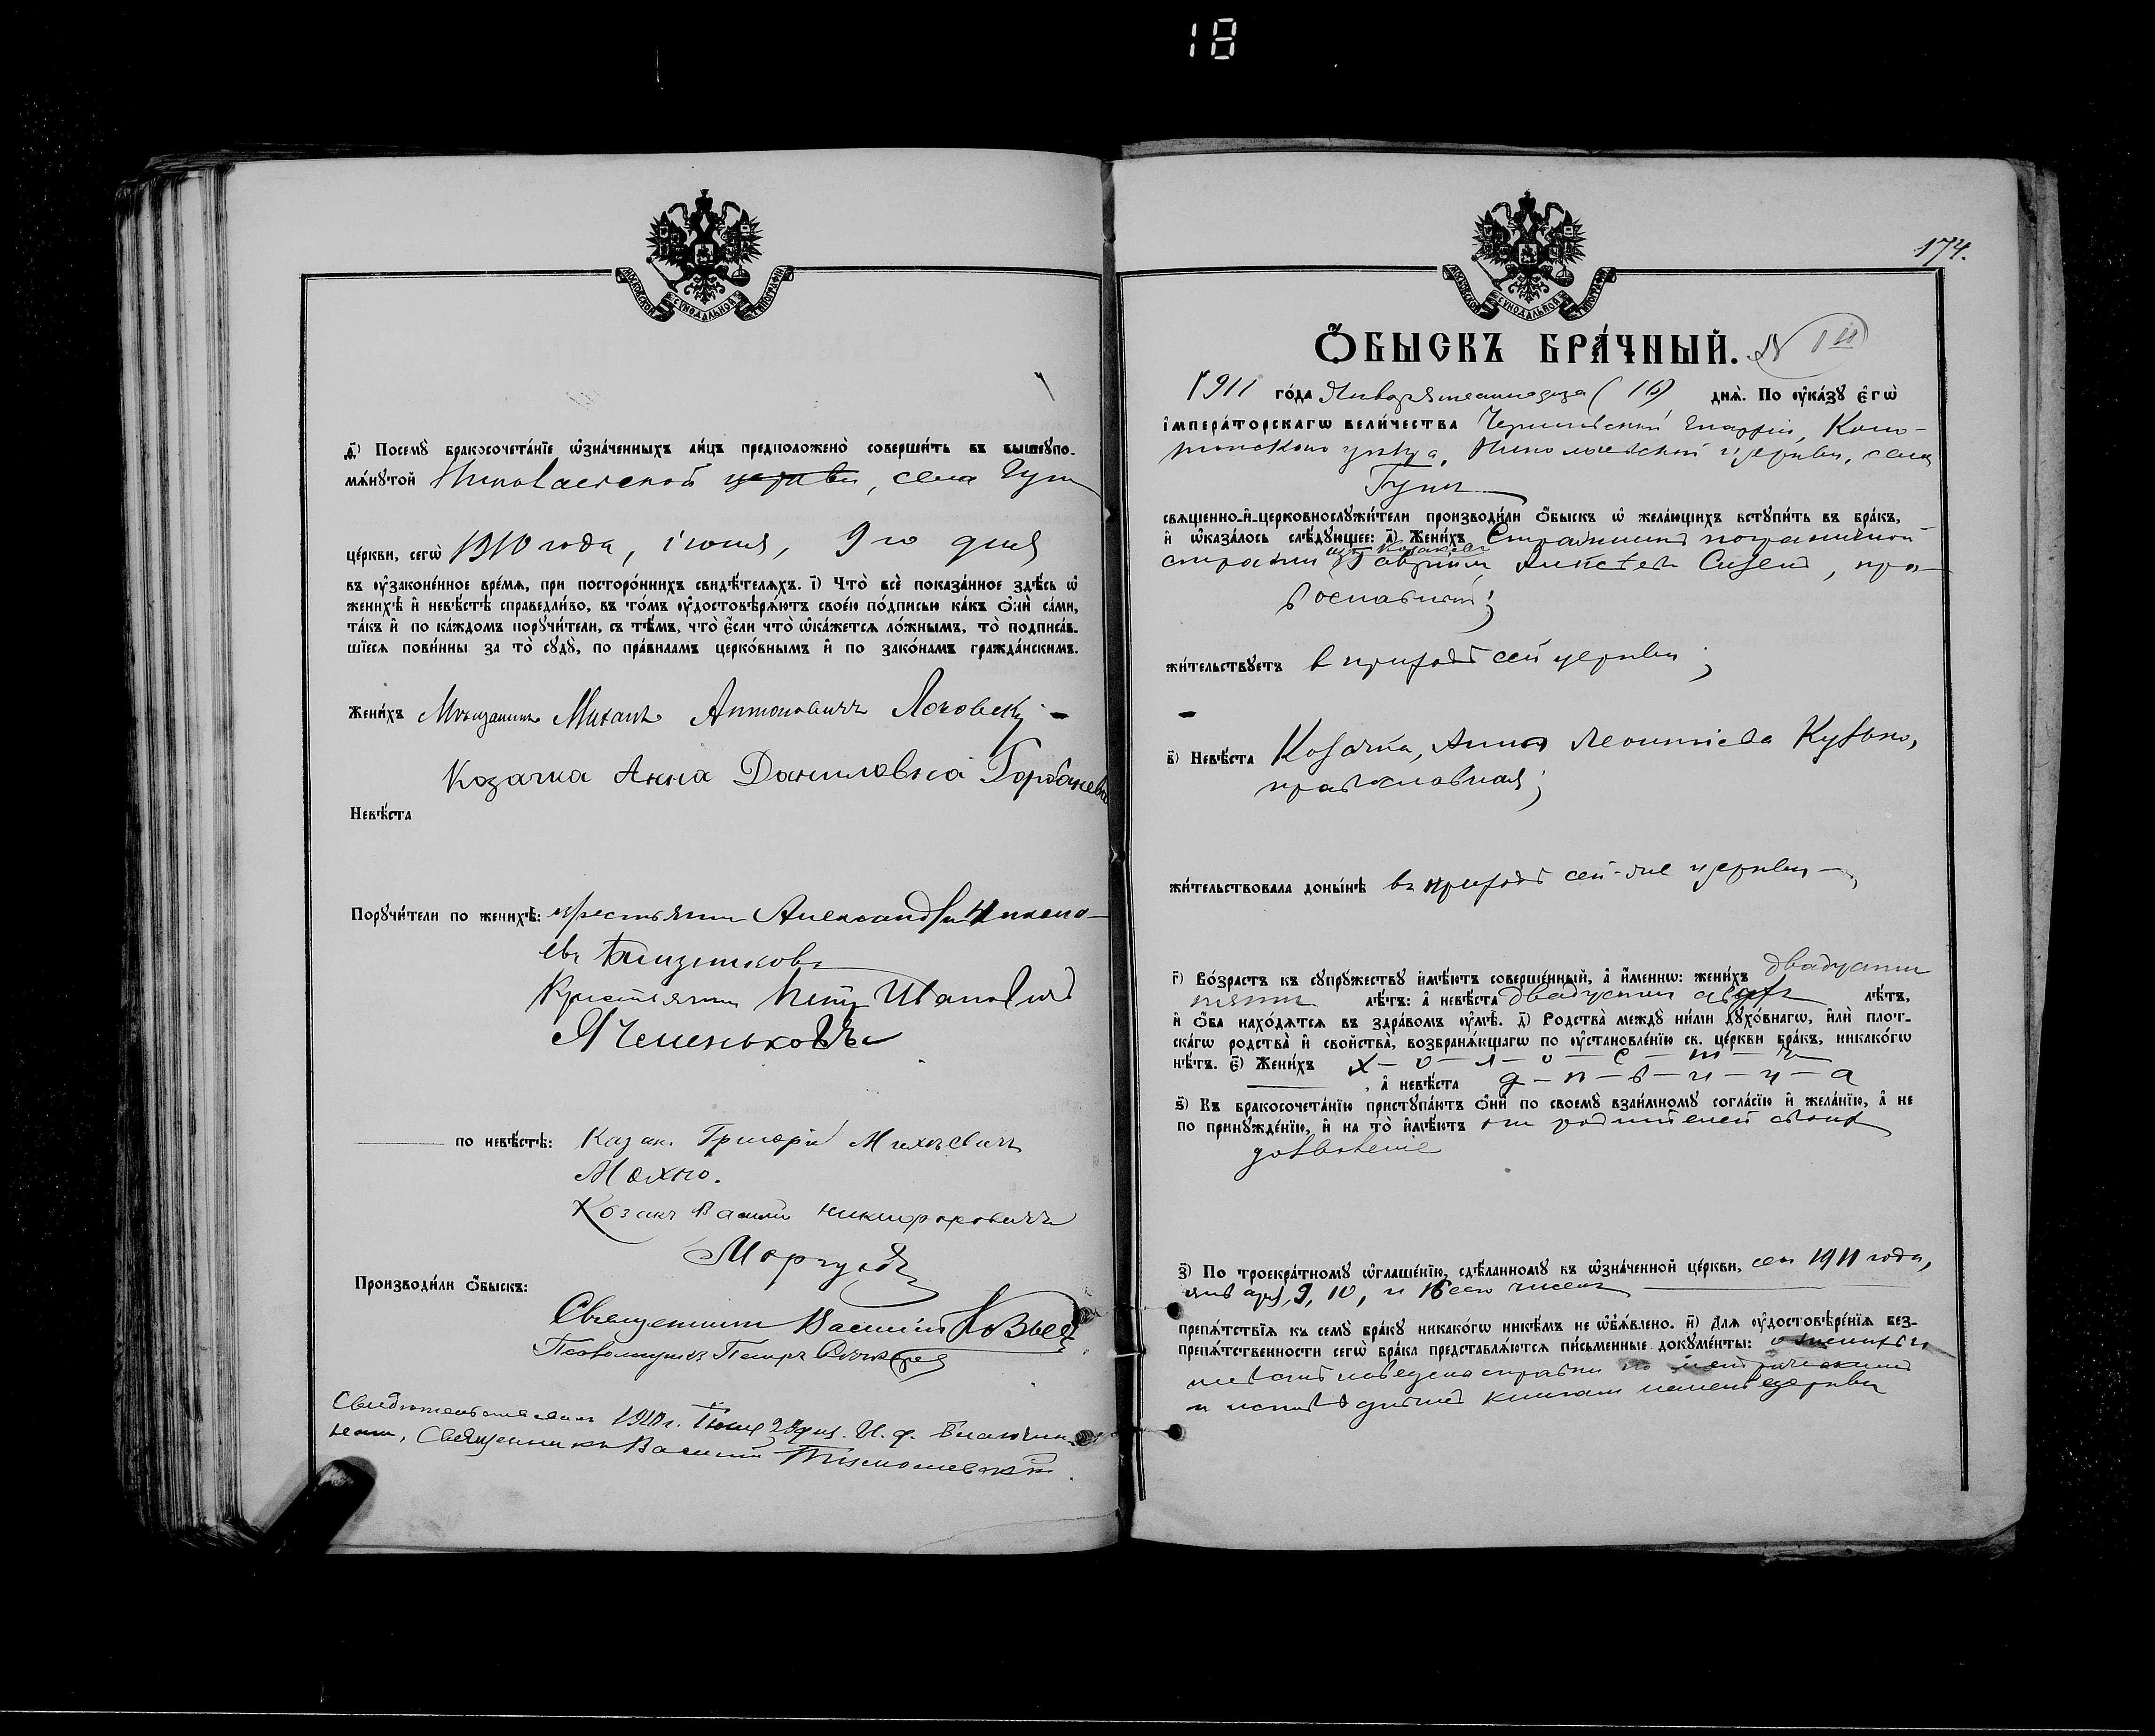 18
МОСКОВСКОЙ СУНОДАЛЬНОЙ ТИПОГРАФІИ
Посемꙋ̀ бракосочета́нїе ѡ҆зна́ченныхъ ли́цъ предположено̀ соверши́ть въ вышеꙋпо-
мѧ́нꙋтой Николаевской церкви, села Гуты
це́ркви, сегѡ̀ 1910 года, іюня, 9 го дня
въ ᲂу҆зако́ненное вре́мѧ, при посторо́ннихъ свидѣ́телѧхъ. і҃) Что̀ всѐ пока́занное здѣ́сь ѡ҆
женихѣ̀ и҆ невѣ́стѣ справедли́во, въ то́мъ ᲂу҆достовѣрѧ́ютъ свое́ю по́дписью ка́къ ѻ҆нѝ са́ми,
та́къ и҆ по ка́ждомъ порꙋчи́тели, съ тѣ́мъ, что̀ є҆́сли что̀ ѡ҆ка́жетсѧ ло́жнымъ, то̀ подписа́в-
шїесѧ пови́нны за то̀ сꙋдꙋ̀, по пра́виламъ церко́внымъ и҆ по зако́намъ гражда́нскимъ.
Жени́хъ Мѣщанинъ Михаилъ Антоновичъ
Козачка Анна Даниловна
Невѣ́ста
Порꙋчи́тели по женихѣ̀: крестьянинъ Александръ
Крестьянинъ Петръ Ивановичъ
по невѣ́стѣ: Казакъ Григорій Михѣевичъ
Махно.
Козакъ Василій Никифоровичъ
Производи́ли ѻ҆́быскъ:
Священникъ Василій
Псаломщикъ Петръ
1910 г. Іюня
Священникъ Василій
МОСКОВСКОЙ СУНОДАЛЬНОЙ ТИПОГРАФІИ
174.
Ѻ҆́БЫСКЪ БРА́ЧНЫЙ. N
1911 го́да Января (16) днѧ̀. По ᲂу҆ка́зꙋ є҆гѡ̀
і҆мпера́торскагѡ вели́чества Черниговской Епархіи, Коно-
топскаго уѣзда, Николаевской церкви, села
Гуты
свѧще́нно-и҆-церковнослꙋжи́тели производи́ли ѻ҆́быскъ ѡ҆ жела́ющихъ встꙋпи́ть въ бра́къ,
и҆ ѡ҆каза́лось слѣ́дꙋющее: а҃) Жени́хъ Стражникъ пограничной
стражи изъ козаковъ Гавріилъ Алексѣевъ Сизенъ, пра-
вославный;
жи́тельствꙋетъ въ приходѣ сей церкви;
в҃) Невѣ́ста Козачка, Анна Леонтіева
православная;
жи́тельствовала доны́нѣ въ приходѣ сей-же церкви
г҃) Во́зрастъ къ сꙋпрꙋ́жествꙋ и҆мѣ́ютъ соверше́нный, а҆ и҆́менно: жени́хъ двадцати
пяти лѣ́тъ: а҆ невѣ́ста двадцати двухъ лѣ́тъ,
и҆ ѻ҆́ба нахо́дѧтсѧ въ здра́вомъ ᲂу҆мѣ̀. д҃) Родства̀ междꙋ̀ ни́ми дꙋхо́внагѡ, и҆лѝ плот-
ска́гѡ родства̀ и҆ сво́йства̀, возбранѧ́ющагѡ по ᲂу҆становле́нїю св. це́ркви бра́къ, никако́гѡ
нѣ́тъ. є҃) Жени́хъ х-о-л-о-с-т-ъ
, а҆ невѣ́ста д-ѣ-в-и-ц-а
ѕ҃) Къ бракосочета́нїю пристꙋпа́ютъ ѻ҆нѝ по своемꙋ̀ взаи́мномꙋ согла́сїю и҆ жела́нїю, а҆ не
по принꙋжде́нїю, и҆ на то̀ и҆мѣ́ютъ отъ родителей своихъ
дозволеніе
з҃) По троекра́тномꙋ ѡ҆глаше́нїю, сдѣ́ланномꙋ въ ѡ҆зна́ченной це́ркви, сего 1911 года,
января, 9, 10, и 16 чиселъ
препѧ́тствїѧ къ семꙋ̀ бра́кꙋ никако́гѡ никѣ́мъ не ѡ҆бъѧ́влено. и҃) Длѧ ᲂу҆достовѣре́нїѧ без-
препѧ́тственности сегѡ̀ бра́ка представлѧ́ютсѧ пи́сьменные докꙋме́нты: о женихѣ и
невѣстѣ наведена справка по метрическимъ
и исповѣднымъ книгамъ церкви